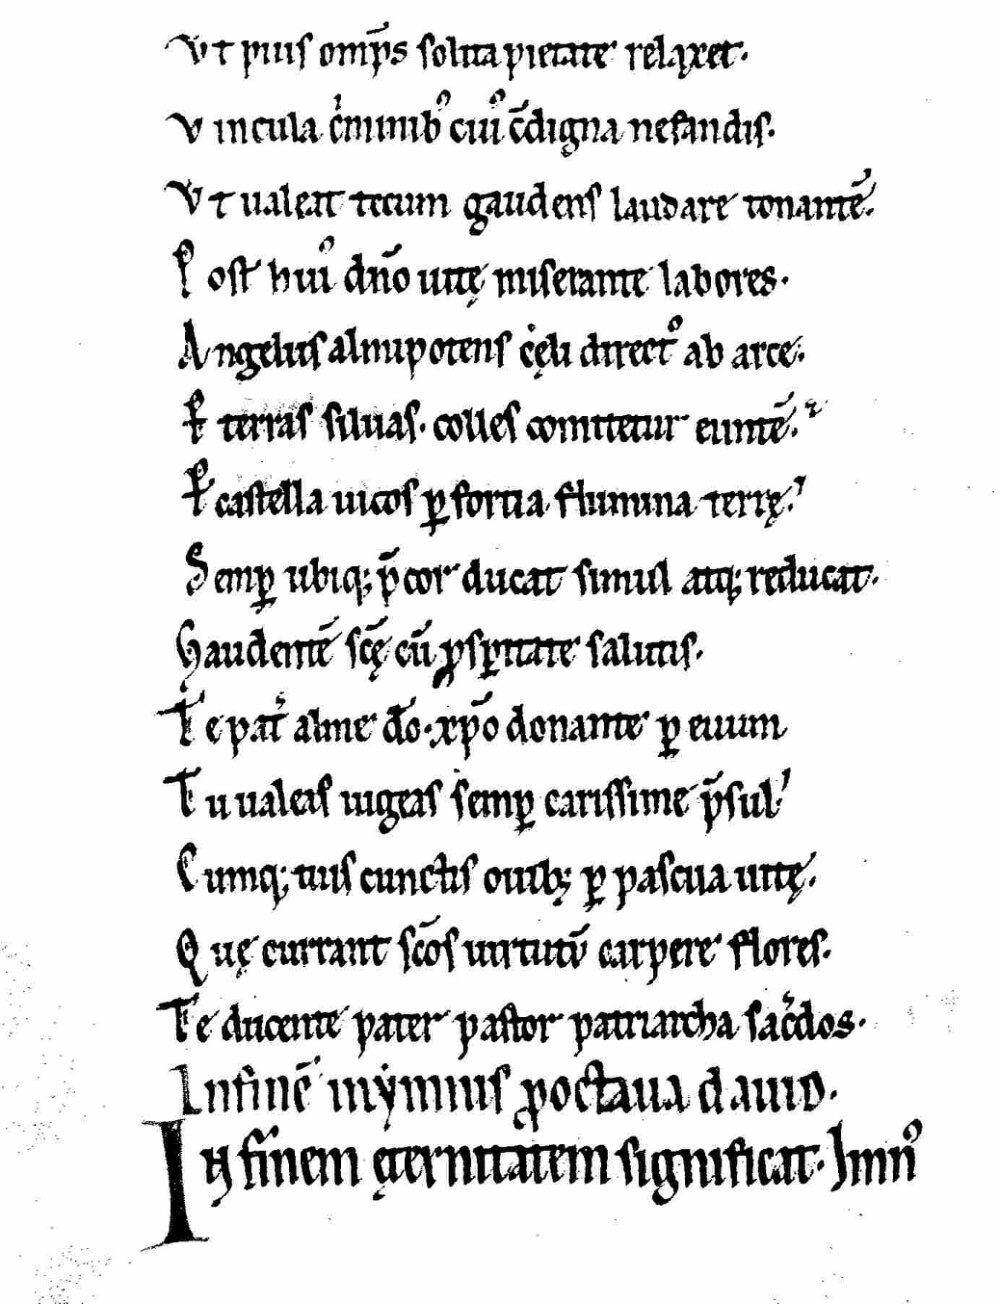 Vt pius omp̄s solita pietate relaxet.
Vincula c̍minib᾿ cui᾿ c̄digna nefandis.
Vt ualeat tecum gaudens laudare tonantē.
Post hui᾿ dn̄o uitę miserante labores.
Angelus almipotens cęli direct᾿ ab arce.
Et terras siluas. colles comitetur euntē.
Et castella uicos ꝑ fortia flumina terrę.
Semꝑ ubiq; p̄cor ducat simul atq; reducat.
Gaudentē scę̄ cū ꝓsꝑitate salutis.
Te pat̍ alme dō. xp̄o donante ꝑ euum
Tu ualeas uigeas semꝑ carissime p̄sul.
Cumq; tuis cunctis ouib; ꝑ pascua uitę.
Quę currant sc̄os uirtutū carpere flores.
Te ducente pater pastor patriarcha sac̍dos.
In finē in ẏmnis ꝓ octaua dauid.
In finem ęternitatem significat. Imn᾿